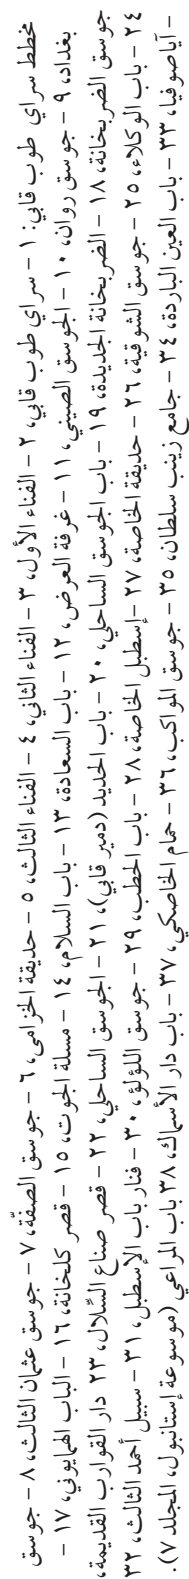 مخطط سراي طوب قابي: ١ - سراي طوب قابي، ٢ - الفناء الأول، ٣ - الفناء الثاني، ٤ - الفناء الثالث، ٥ - حديقة الخزامى، ٦ - جوسق الصفّة، ٧ - جوسق عثمان الثالث، ٨ - جوسق
بغداد، ٩ - جوسق روان، ١٠ - الجوسق الصيني، ١١ - غرفة العرض، ١٢ - باب السعادة، ١٣ - باب السلام، ١٤ - مسلة الجوت، ١٥ - قصر كلخانة، ١٦ - الباب الهمايوني، ١٧ -
جوسق الضربخانة، ١٨ - الضربخانة الجديدة، ١٩ - باب الجوسق الساحلي، ٢٠ - باب الحديد (دمير قابي)، ٢١ - الجوسق الساحلي، ٢٢ - قصر صناع السِّلال، ٢٣ دار القوارب القديمة،
٢٤ - باب الوكلاء، ٢٥ - جوسق الشوقية، ٢٦ - حديقة الخاصة، ٢٧ - إسطبل الخاصة، ٢٨ - باب الحطب، ٢٩ - جوسق اللؤلؤ، ٣٠ - فنار باب الإسطبل، ٣١ - سبيل أحمد الثالث، ٣٢
- آياصوفيا، ٣٣ - باب العين الباردة، ٣٤ - جامع زينب سلطان، ٣٥ - جوسق المواكب، ٣٦ - حمام الخاصكي، ٣٧ - باب دار الأسماك، ٣٨ باب المراعي (موسوعة إستانبول، المجلد ٧).